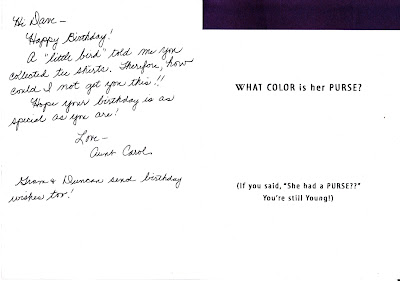 Hi Dave -
Happy Birthday!
A "little bird" told me you
collected tee shirts. Therefore, how
could I not get you this!!
Hope your birthday is as
special as you are!
Love -
Aunt Carol
Gram & Duncan send birthday
wishes too!
WHAT COLOR is her PURSE?
(If you said, "She had a PURSE??"
You're still Young!)